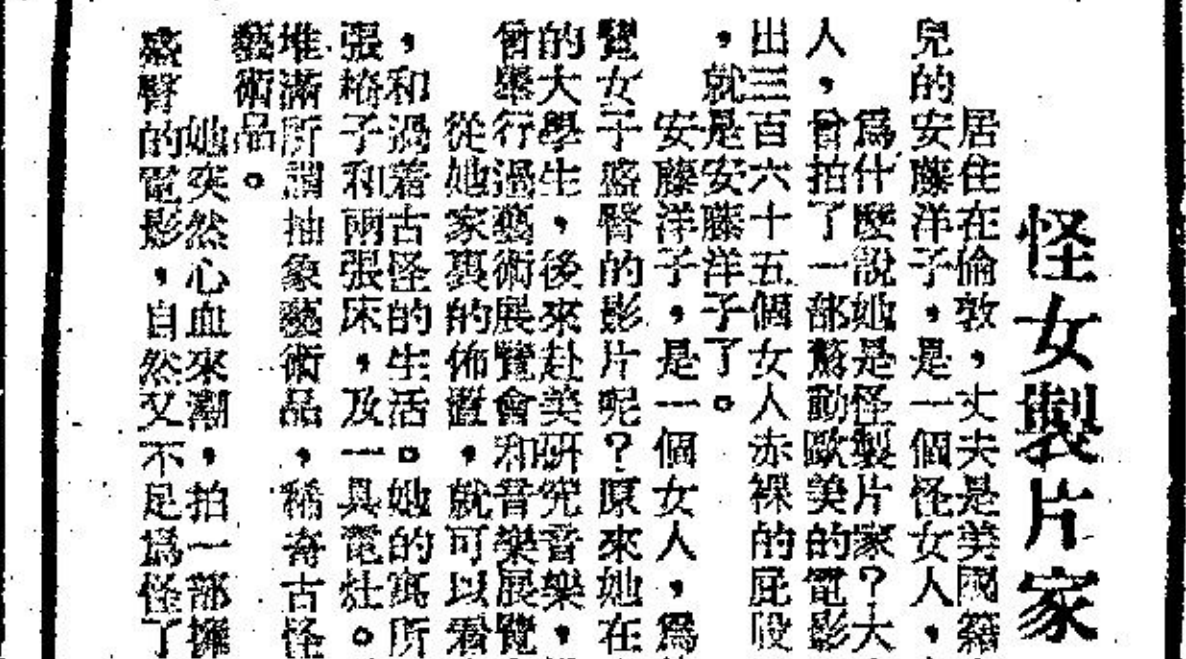 怪女製片家
居住在倫敦，丈夫是美國籍
兒的安藤洋子，是一個怪女人，
為什麼說她是怪製片家？大
人，曾拍了一部驚動歐美的電影
出三百六十五個女人赤裸的屁股
，就是安藤洋子了。
安藤洋子，是一個女人，為
覽女子盛臀的影片呢？原來她在
的大學生，後來赴美研究音樂，
曾舉行過藝術展覽會和音樂展覽
從她家裏的佈置，就可以看
，和過着古怪的生活。她的寓所
張椅子和兩張床，及一具電灶。
堆滿所謂抽象藝術品，稀奇古怪
藝術品。
她突然心血來潮，拍一部擁
盛臀的電影，自然又不足為怪了